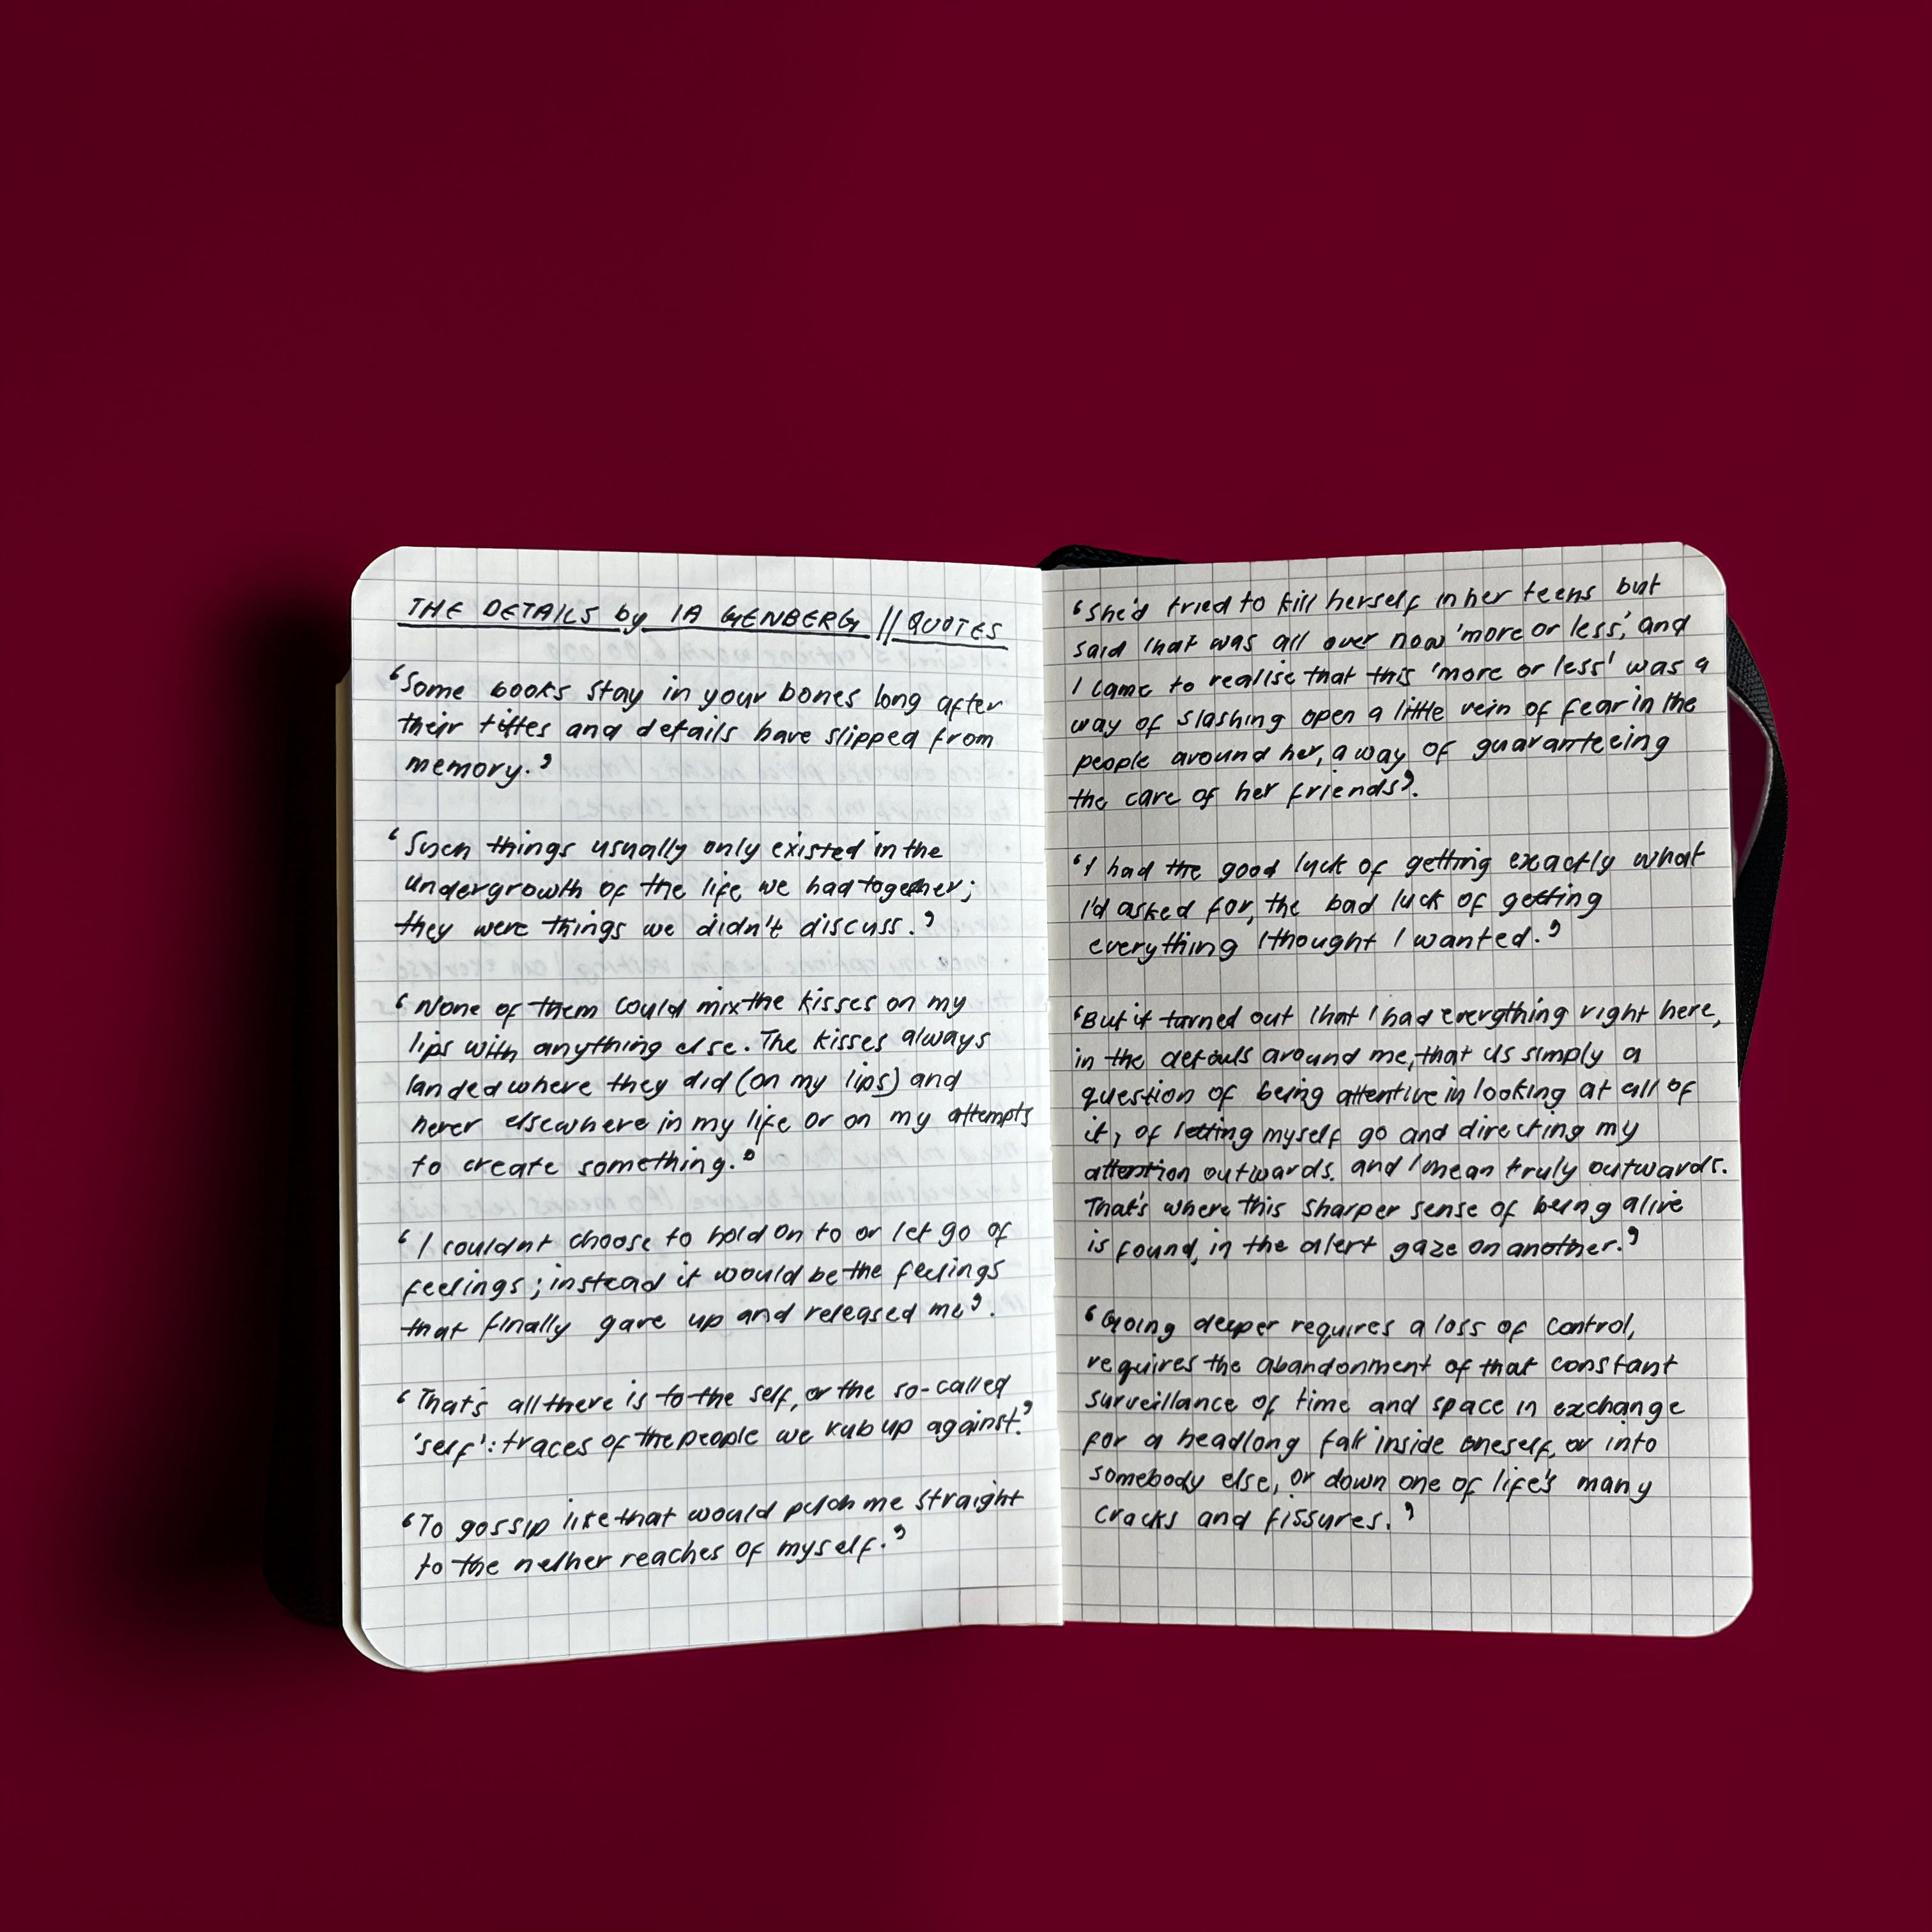 THE DETAILS by IA GENBERG // QUOTES
'Some books stay in your bones long after
their titles and details have slipped from
memory.'
'Such things usually only existed in the
undergrowth of the life we had together;
they were things we didn't discuss.'
'None of them could mix the kisses on my
lips with anything else. The kisses always
landed where they did (on my lips) and
never elsewhere in my life or on my attempts
to create something.'
'I couldn't choose to hold on to or let go of
feelings; instead it would be the feelings
that finally gave up and released me'.
'That's all there is to the self, or the so-called
'self': traces of the people we rub up against.'
'To gossip like that would pitch me straight
to the nether reaches of myself.'
'She'd tried to kill herself in her teens but
said that was all over now 'more or less', and
I came to realise that this 'more or less' was a
way of slashing open a little vein of fear in the
people around her, a way of guaranteeing
the care of her friends'.
'I had the good luck of getting exactly what
I'd asked for, the bad luck of getting
everything I thought I wanted.'
'But it turned out that I had everything right here,
in the details around me, that is simply a
question of being attentive in looking at all of
it, of letting myself go and directing my
attention outwards. and I mean truly outwards.
That's where this sharper sense of being alive
is found, in the alert gaze on another.'
'Going deeper requires a loss of control,
requires the abandonment of that constant
surveillance of time and space in exchange
for a headlong fall inside oneself, or into
somebody else, or down one of life's many
cracks and fissures.'